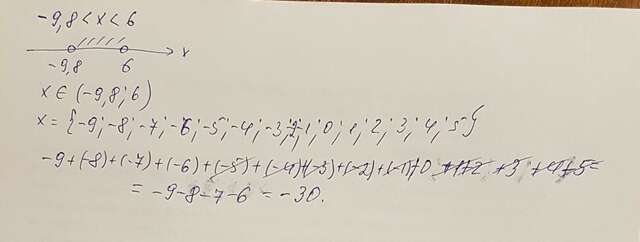 -9,8 < x < 6
x
-9,8 6
x ∈ (-9,8; 6)
x = {-9; -8; -7; -6; -5; -4; -3; -2; -1; 0; 1; 2; 3; 4; 5}
-9+(-8)+(-7)+(-6)+(-5)+(-4)+(-3)+(-2)+(-1)+0+1+2+3+4+5=
= -9-8-7-6 = -30.